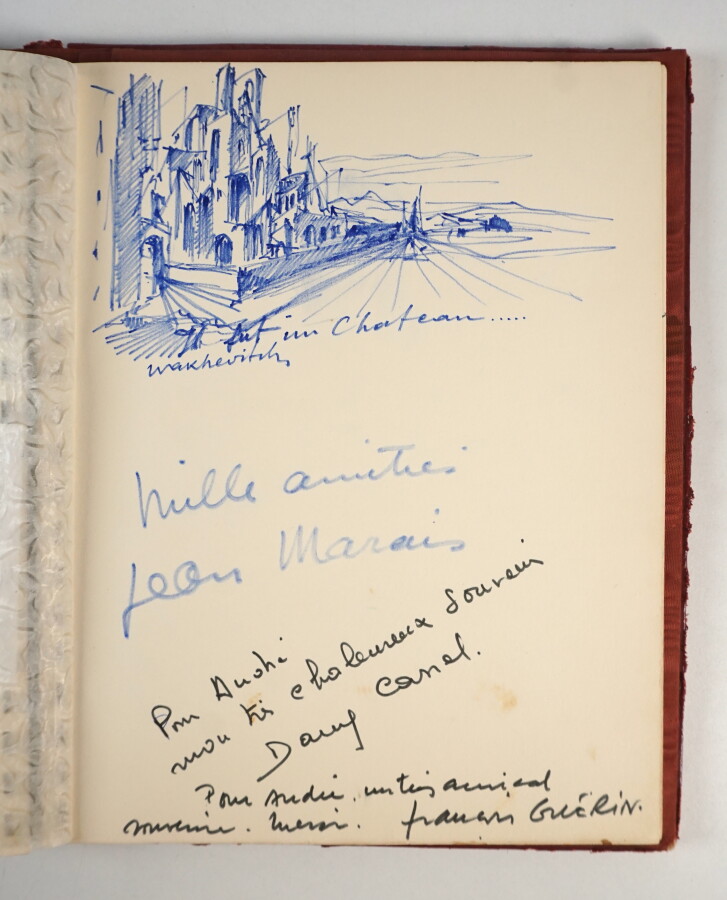 Il fut un Chateau .....
Wakhevitch
Mille amitiés
Jean Marais
Pour André
mon très chaleureux souvenir
Dany Carrel.
Pour André, un très amical
souvenir. Merci. François GUÉRIN.